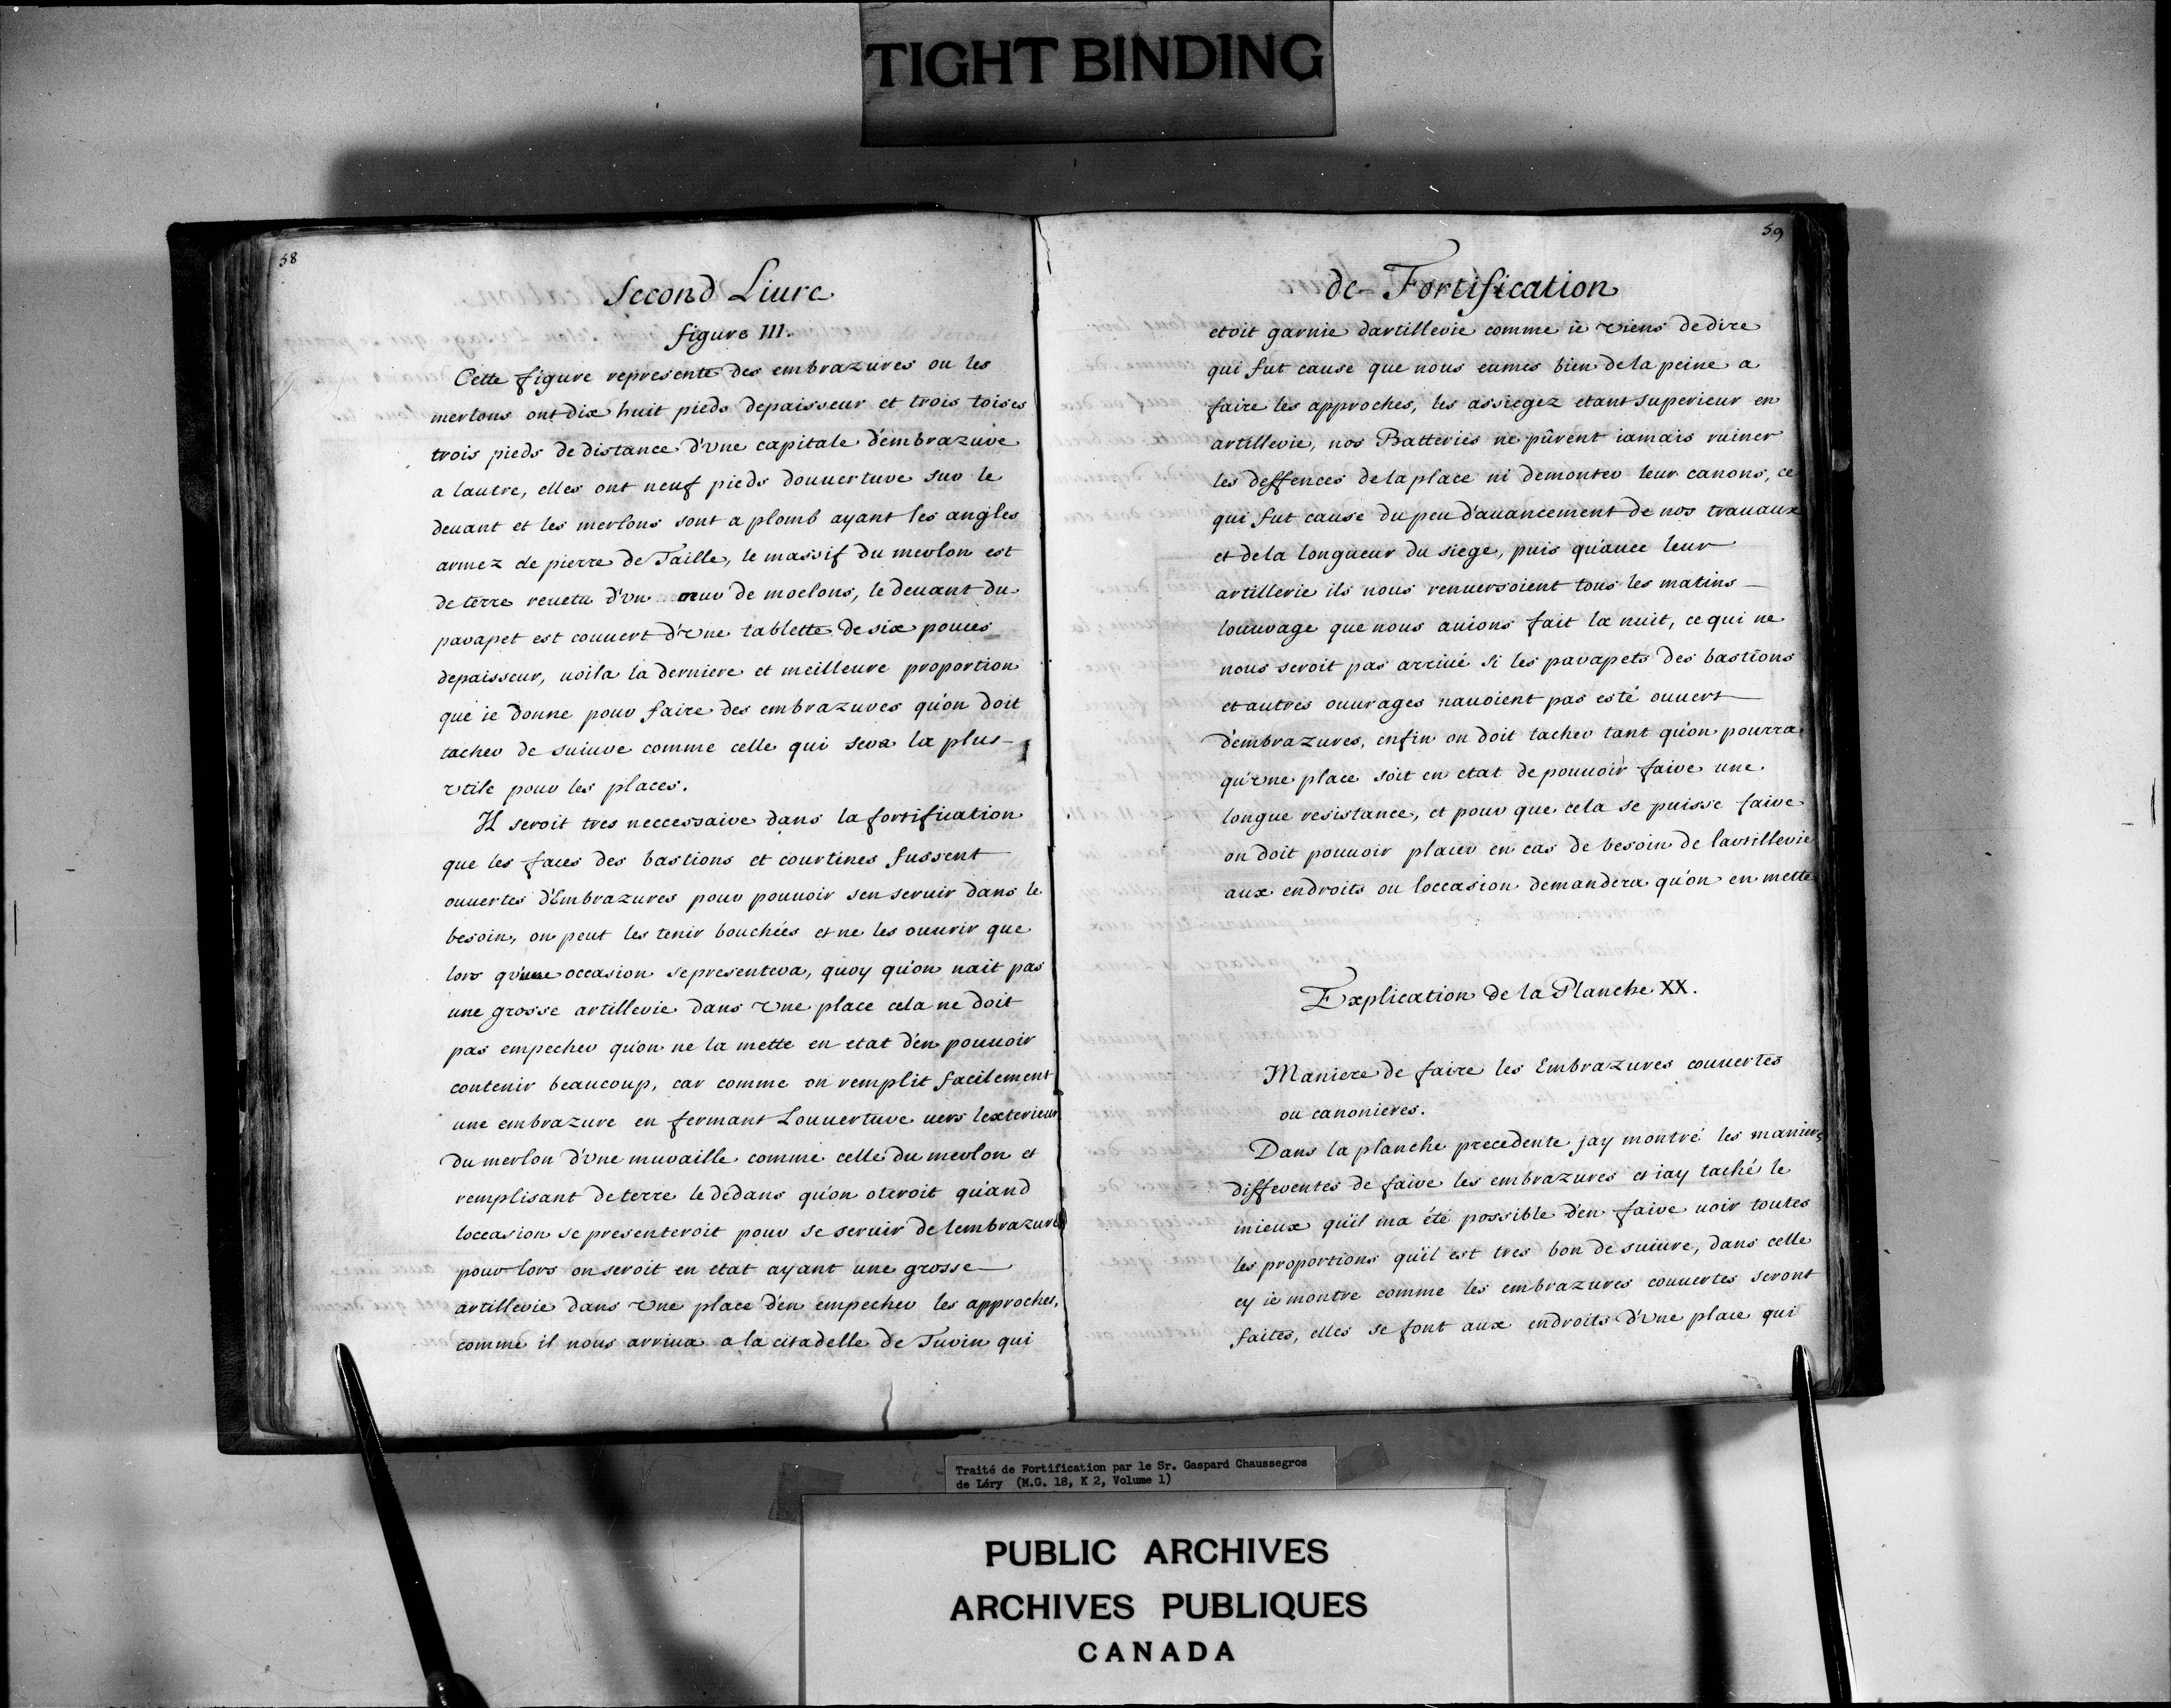 TIGHT BINDING
58
Second Liure
figure III.
Cette figure represente des embrazures ou les
merlons ont dix huit pieds depaisseur et trois toises
trois pieds de distance d'vne capitale d'embrazure
a lautre, elles ont neuf pieds douuerture sur le
deuant et les merlons sont a plomb ayant les angles
armez de pierre de Taille, le massif du merlon est
de terre reuetu d'vn mur de moelons, le deuant du
parapet est couuert d'vne tablette de six pouces
depaisseur, uoila la derniere et meilleure proportion
que ie donne pour faire des embrazures qu'on doit
tacher de suiure comme celle qui sera la plus
vtile pour les places.
Il seroit tres neccessaire dans la fortification
que les faces des bastions et courtines fussent
ouuertes d'Embrazures pour pouuoir sen seruir dans le
besoin, on peut les tenir bouchées et ne les ouurir que
lors qu'une occasion se presentera, quoy qu'on nait pas
une grosse artillerie dans vne place cela ne doit
pas empecher qu'on ne la mette en etat d'en pouuoir
contenir beaucoup, car comme on remplit facilement
une embrazure en fermant Louuerture uers lexterieur
du merlon d'vne muraille comme celle du merlon et
remplisant de terre le dedans qu'on oteroit qu'and
loccasion se presenteroit pour se seruir de lembrazure
pour lors on seroit en etat ayant une grosse
artillerie dans vne place d'en empecher les approches,
comme il nous arriua a la citadelle de Turin qui
59
de Fortification
etoit garnie dartillerie comme ie viens de dire
qui fut cause que nous eumes bien de la peine a
faire les approches, les assiegez etant superieur en
artillerie, nos Batteries ne pûrent iamais ruiner
les deffences de la place ni demonter leur canons, ce
qui fut cause du peu d'auancement de nos trauaux
et de la longueur du siege, puis qu'auec leur
artillerie ils nous renuersoient tous les matins
louurage que nous auions fait la nuit, ce qui ne
nous seroit pas arriué si les parapets des bastions
et autres ouurages nauoient pas esté ouuert
d'embrazures, enfin on doit tacher tant qu'on pourra
qu'vne place soit en etat de pouuoir faire une
longue resistance, et pour que cela se puisse faire
on doit pouuoir placer en cas de besoin de lartillerie
aux endroits ou loccasion demandera qu'on en mette
Explication de la Planche XX.
Maniere de faire les Embrazures couuertes
ou canonieres.
Dans la planche precedente jay montré les manieres
differentes de faire les embrazures et iay taché le
mieux qu'il ma été possible d'en faire uoir toutes
les proportions qu'il est tres bon de suiure, dans celle
cy ie montre comme les embrazures couuertes seront
faites, elles se font aux endroits d'vne place qui
Traité de Fortification par le Sr. Gaspard Chaussegros
de Léry (M.G. 18, K 2, Volume 1)
PUBLIC ARCHIVES
ARCHIVES PUBLIQUES
CANADA